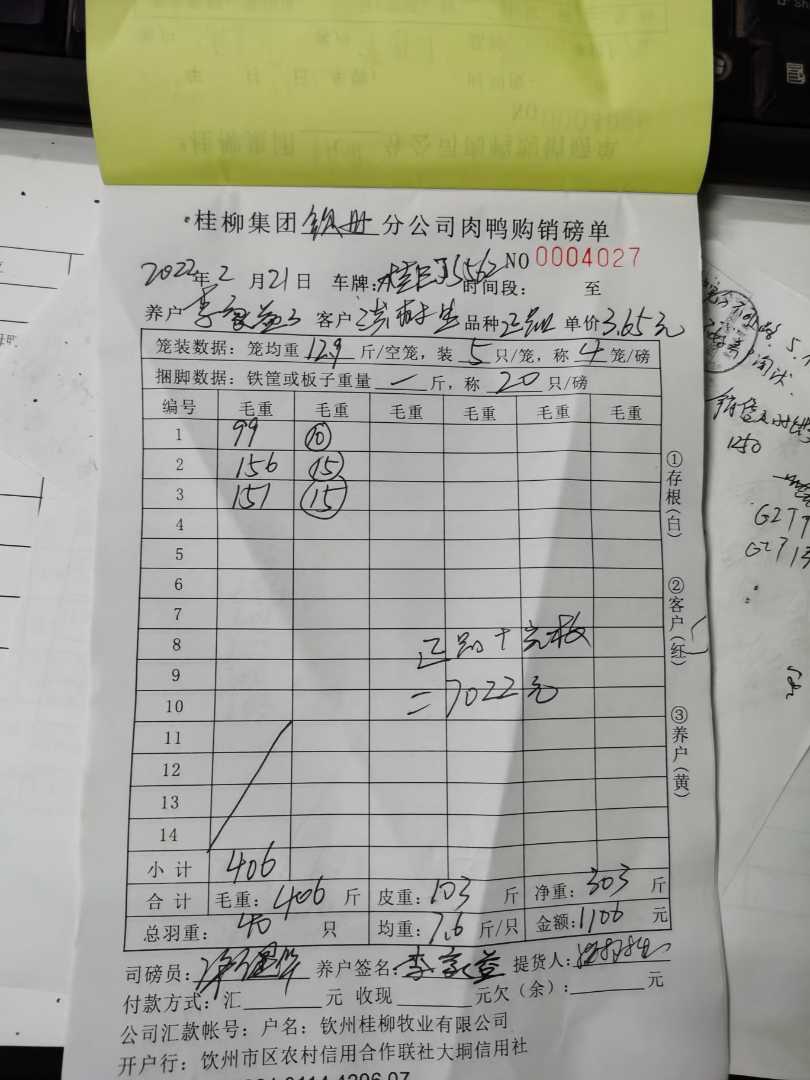 桂柳集团 钦州 分公司肉鸭购销磅单
NO 0004027
2022年2月21日 车牌: 时间段: 至
养户 李家益 客户 品种 正品 单价 3.65元
笼装数据: 笼均重 12.9 斤/空笼, 装 5 只/笼, 称 4 笼/磅
捆脚数据: 铁筐或板子重量 一 斤, 称 20 只/磅
编号 毛重 毛重 毛重 毛重 毛重 毛重
1 99 10
2 156 15
3 151 15
4
5
6
7
8
9
10
11
12
13
14
正品+光板
=7022元
小计 406
合计 毛重: 406 斤 皮重: 103 斤 净重: 303 斤
总羽重: 40 只 均重: 7.6 斤/只 金额: 1106 元
司磅员: 养户签名: 李家益 提货人:
付款方式: 汇 元 收现 元欠(余): 元
公司汇款帐号: 户名: 钦州桂柳牧业有限公司
开户行: 钦州市区农村信用合作联社大垌信用社
①存根(白)
②客户(红)
③养户(黄)
5.
1250
G277